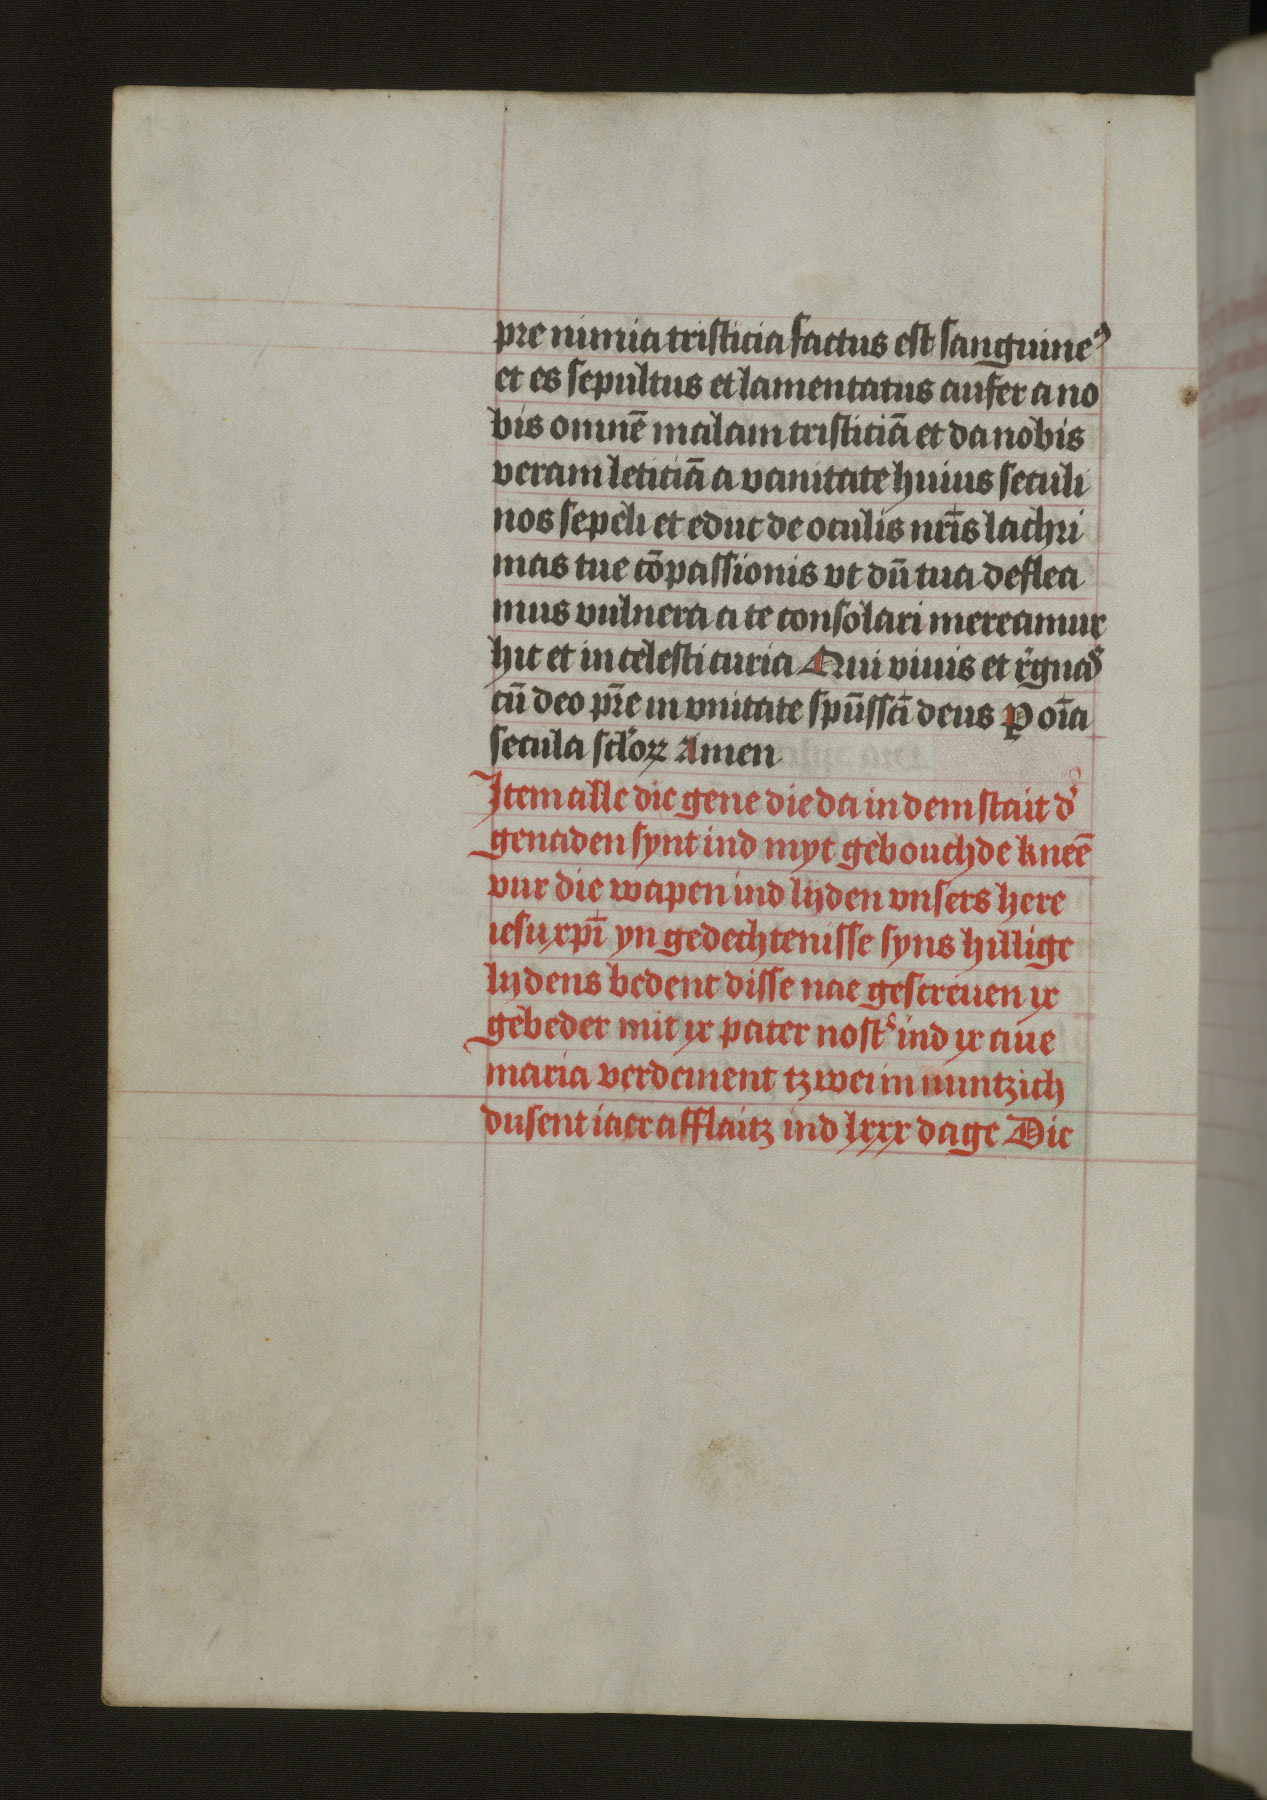 pre nimia tristicia factus est sanguineꝰ
et es sepultus et lamentatus aufer a no
bis omnē malam tristiciā et da nobis
veram leticiā a vanitate huius seculi
nos sepeli et educ de oculis nrīs lachri
mas tue cōpassionis vt dū tua deflea
mus vulnera a te consolari mereamur
hic et in celesti curia Qui viuis et rͤgnas
cū deo prē in vnitate spūsscī deus ꝑ oīa
secula sclo̓ꝝ Amen
Item alle die gene die da in dem stait d̓
genaden synt ind myt gebouchde kneē
vur die wapen ind lijden vnsers here
iesu xpī yn gedechtenisse syns hillige
lijdens bedent disse nae gescreuen ix
gebeder mit ix pater nostˢ ind ix aue
maria verdeinent tzwei in nuntzich
dusent iaer afflaitz ind lxxx dage Die